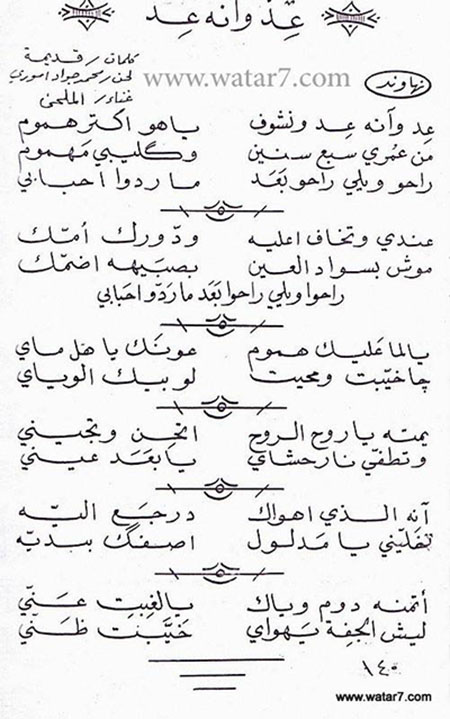 عِد وآنه عِد
كلمات / قديمة
لحن / محمد جواد اموري
غناء / الملحن
www.watar7.com
نهاوند
عِد وآنه عِد ونشوف ياهو اكثر هموم
من عُمري سبع سنين وگليبي مَهموم
راحو ويلي راحو بَعَد ما ردوا احبابي
عندي وتخاف اعليه ودّورك أمّك
موش بسواد العين بصبيهه اضمّك
راحوا ويلي راحوا بَعَد ما ردّو احبابي
يالما عَليك هموم عونَك يا هَل ماي
چا خيّبت ومحيت لو بيك الوياي
يمته ياروح الروح اتحِن وتجيني
وتطفّي نار حشاي يا بَعَد عيني
آنه الذي اهواك درجَع اليّه
تفَليّني يا مَدلول اصفگ بيديّه
أتمنه دوم وياك يالغِبِت عَنّي
ليش الجفِة يَهواي خَيَّبِت ظَنّي
١٤٠
www.watar7.com